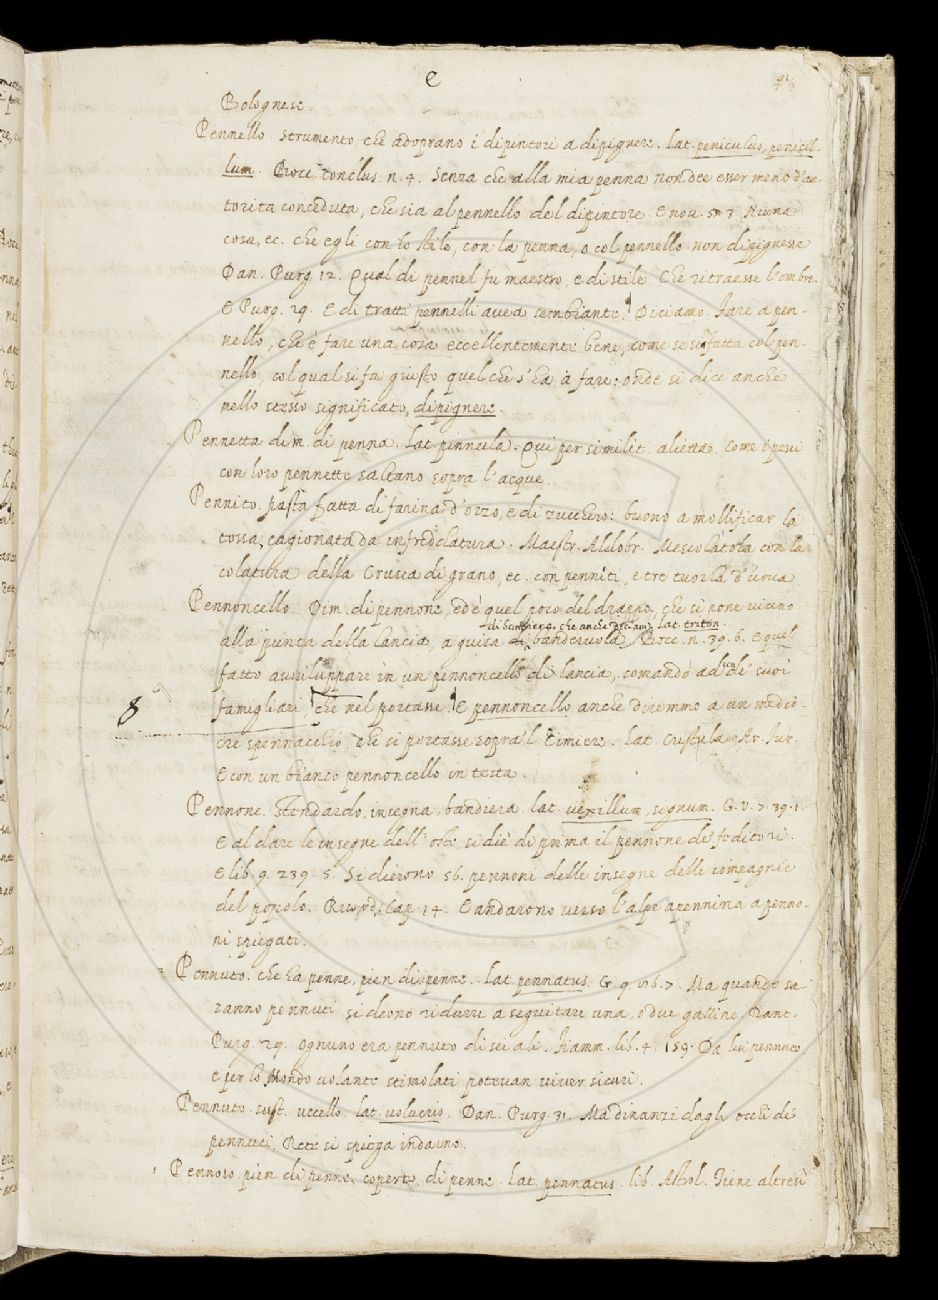 e
Bolognese.
Pennello. Strumento, che adoprano i dipintori a dipignere. Lat. peniculus, penicil-
lum. Bocc. conclus. n. 4. Senza che alla mia penna non dee esser meno d'au-
torita conceduta, che sia al pennello del dipintore. E nou. 5. Niuna
cosa, ec. che egli con lo stile, con la penna, o col pennello non dipignesse
Dan. Purg. 12. Qual di pennel fu maestro, e di stile Che ritraesse l'ombre.
E Purg. 29. E di tratti pennelli auea sembiante. Diciamo. Fare a pen-
nello, che è fare una cosa eccellentemente bene, come se fatta col pen-
nello, col qual si fa giusto quel che s'ha à fare: onde si dice anche
nello stesso significato, dipignere.
Pennetta dim. di penna. Lat. pinnula. Qui per similit. alietta. Come i pesci
con loro pennette saltano sopra l'acque.
Pennito. pasta fatta di farina d'orzo, e di zucchero: buono a mollificar la
tossa, cagionata da infreddatura. Maestr. Aldobr. Mescolatola con la
colatura della Crusca di grano, ec. con penniti, e tre tuorla d'uoua
Pennoncello. Dim. di pennone, ed è quel poco del drappo, che si pone uicino
di bandiera, che anche diciam Lat.
alla punta della lancia, a guisa di banderuola, Bocc. n. 39. 6. E quel
fatto auuiluppare in un pennoncello di lancia, comandò ad un de' suoi
8 famigliari, che nel portasse. E pennoncello anche diremmo a un medio-
cre spennacchio, che si portasse sopra 'l Cimiere. Lat. Cristula Ar. Fur.
E con un bianco pennoncello in testa.
Pennone. Stendardo, insegna, bandiera. Lat. uexillum, signum. G. V. 7. 39. 1.
E al dare le insegne dell'oste si diè di prima il pennone de' feditori.
E lib. 9. 239. 5. Si dierono 56. pennoni delle insegne delle compagnie
del popolo. Ricord. Cap. 14. E andarono uerso l'alpe apennina a penno-
ni spiegati.
Pennuto. che ha penne, pien di penne. Lat. pennatus. G. 9. 76. 7. Ma quando sa
ranno pennuti si deono ridurre a seguitare una, o due galline, Dant.
Purg. 29. Ognuno era pennuto di sei ali. Fiamm. lib. 4. 159. Da lui pennuto
e per lo Mondo uolante stimolati poteuan uiuer sicuri.
Pennuto. sust. uccello. Lat. uolucris. Dan. Purg. 31. Ma dinanzi dagli occhi de
pennuti, Rete si spiega indarno.
Pennoso. pien di penne, coperto di penne. Lat. pennatus. lib. Astrol. Tiene altresì